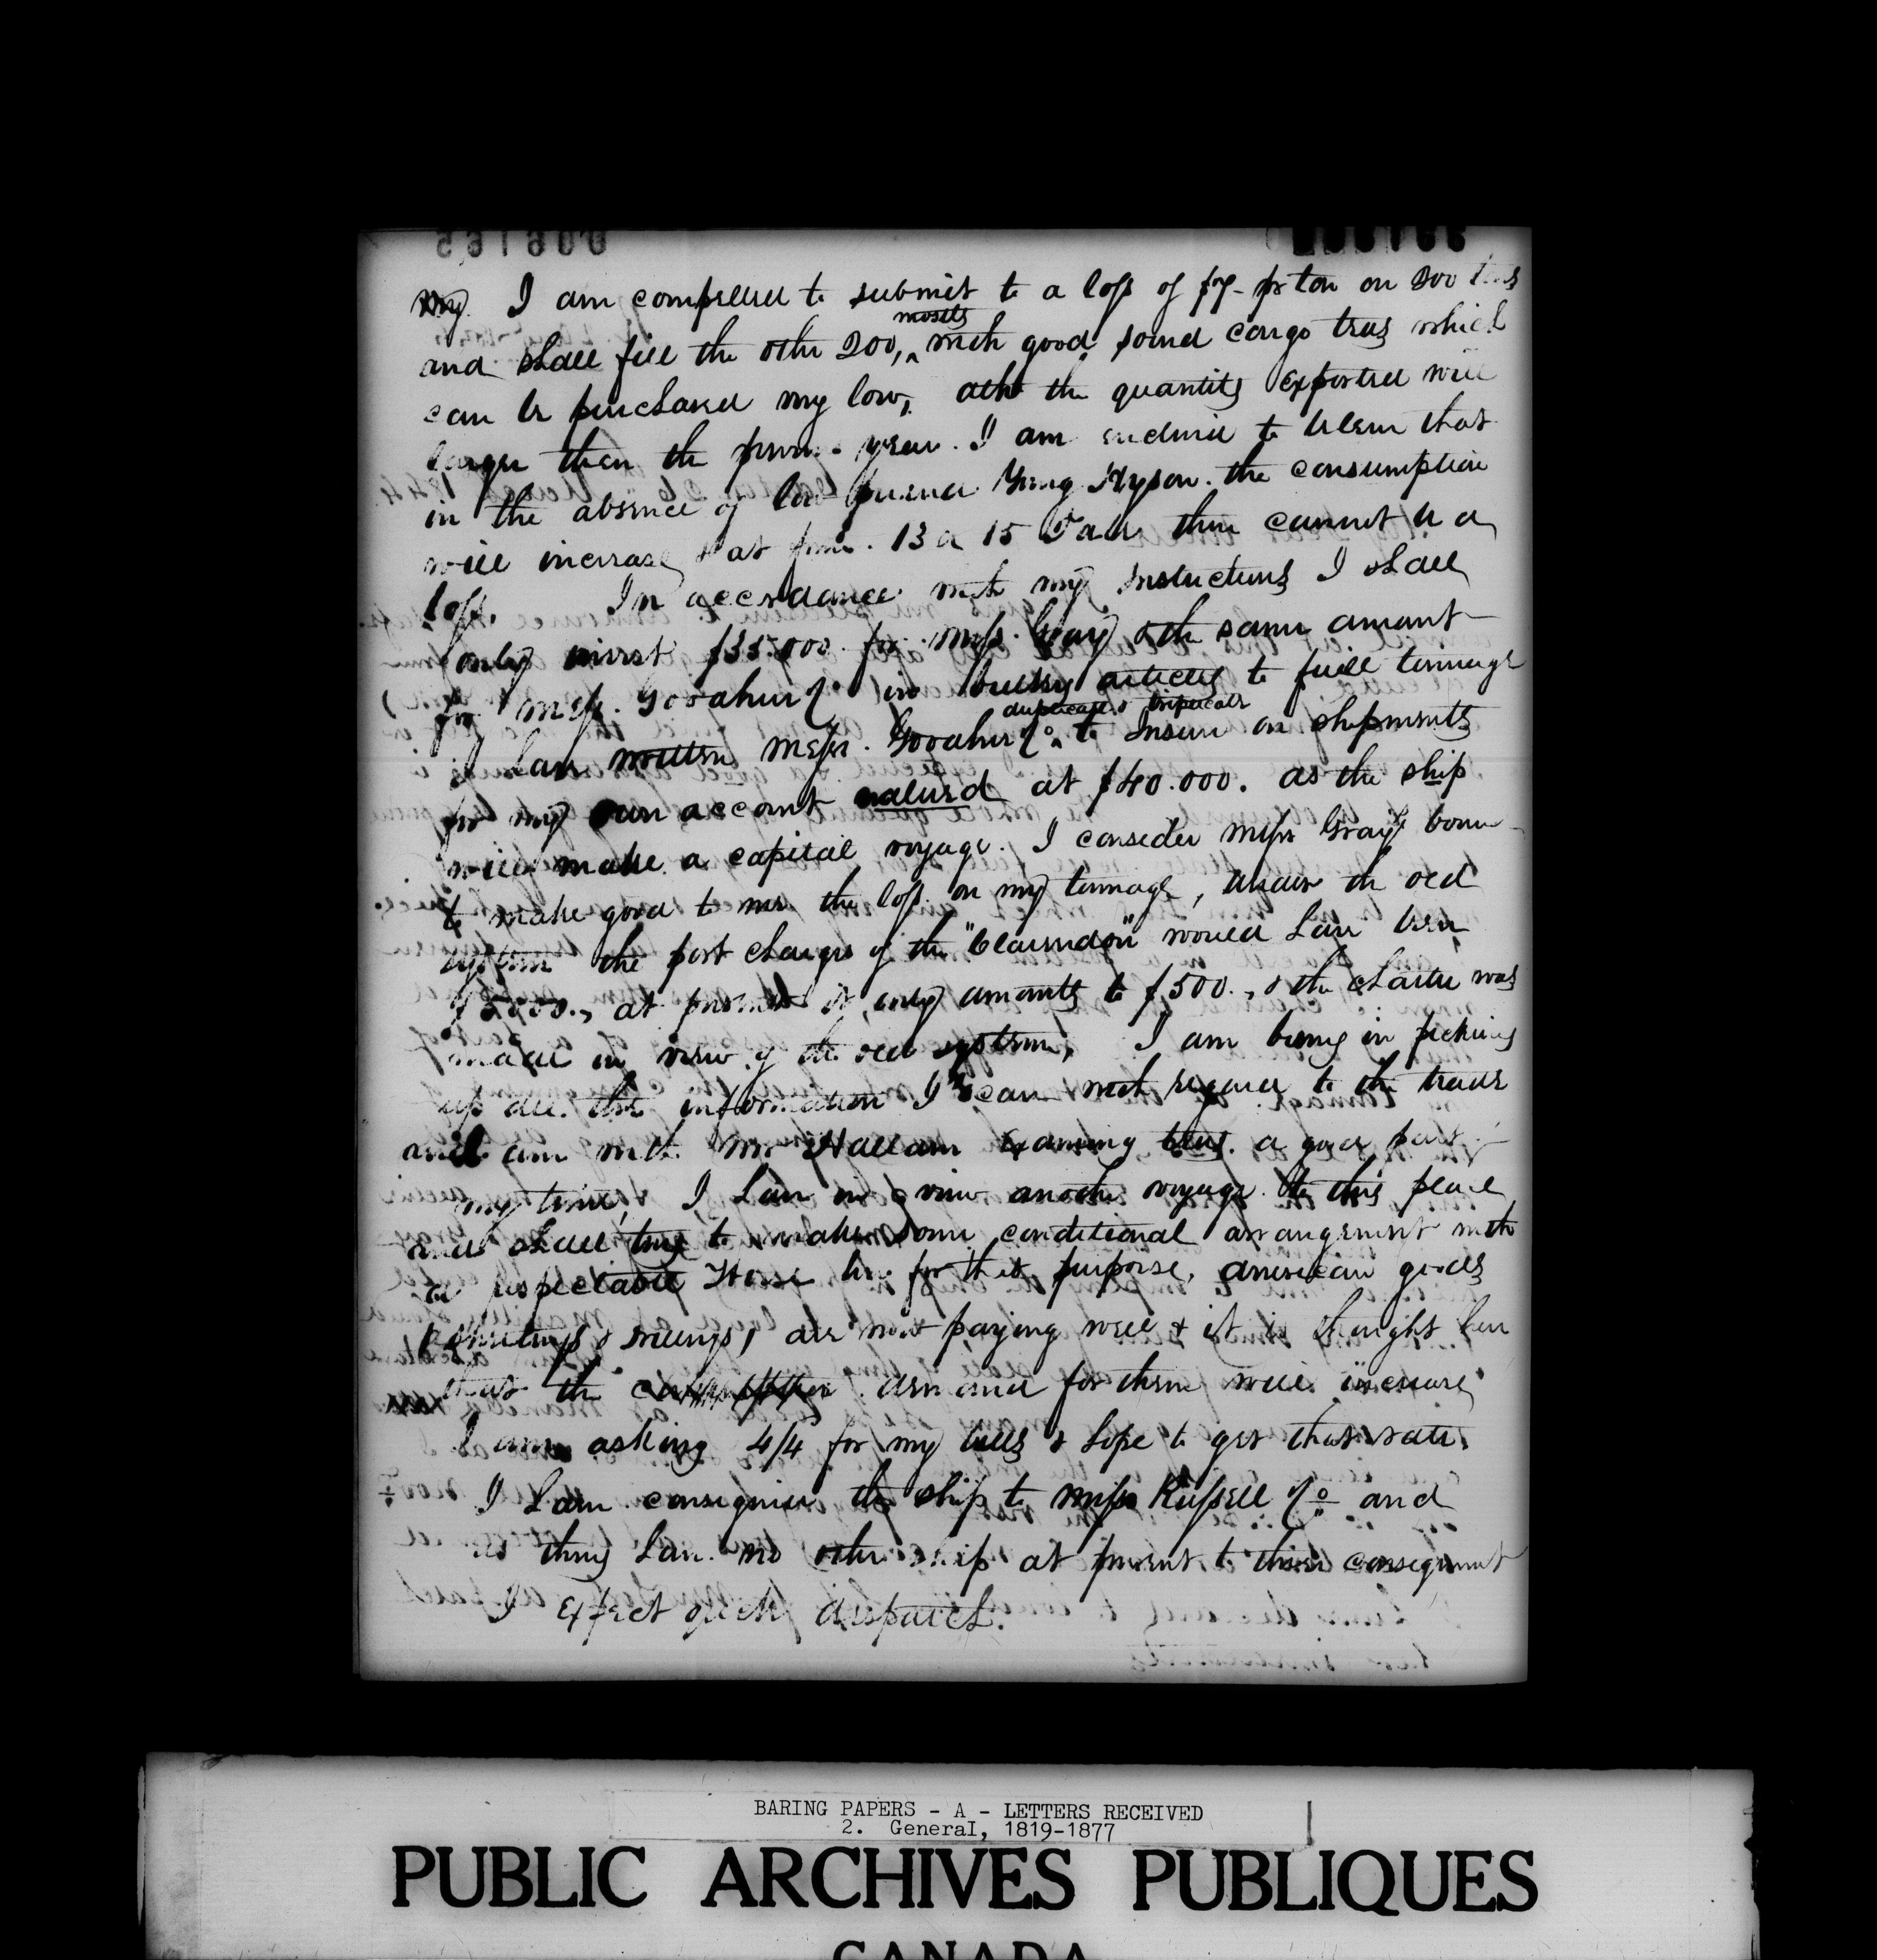 I am compelled to submit to a loss of $7- pr ton on 200 tons
and shall fill the other 200, ^ mostly with good sound cargo teas which
can be purchased very low, altho the quantity exported will
larger than the previous year. I am inclined to believe that
in the absence of low priced Young Hyson the consumption
will increase & at from 13 a 15 Tales there cannot be a
loss. In accordance with my Instructions I shall
only invest $35.000 for Messrs. Gray & the same amount
for Messrs. Goodhue & Co in bulky articles to fill tonnage
I have written Messrs. Goodhue & Co ^ duplicate & triplicate to Insure on shipments
for my own account valued at $40.000. as the ship
will make a capital voyage. I consider Messrs Gray bound
to make good to me the loss on my tonnage, under the old
system the port charges of the "Clarendon" would have been
$5000., at present it only amounts to $500., & the charter was
made in view of the old system, I am busy in picking
up all the information I can with regard to the trade
and am with Mr Hallam Examing teas a good part
my time, I have in view another voyage to this place
and shall try to make some conditional arrangement with
a respectable House here for that purpose. american goods
sheetings & drillings, are now paying well & it is thought here
that the demand for them will increase
I am asking 4/4 for my bills & hope to get that rate.
I have consigned the ship to Messrs Russell & Co and
as they have no other ship at present to their consignment
I Expect quick dispatch.
006165
BARING PAPERS - A - LETTERS RECEIVED
2. General, 1819-1877
PUBLIC ARCHIVES PUBLIQUES
CANADA